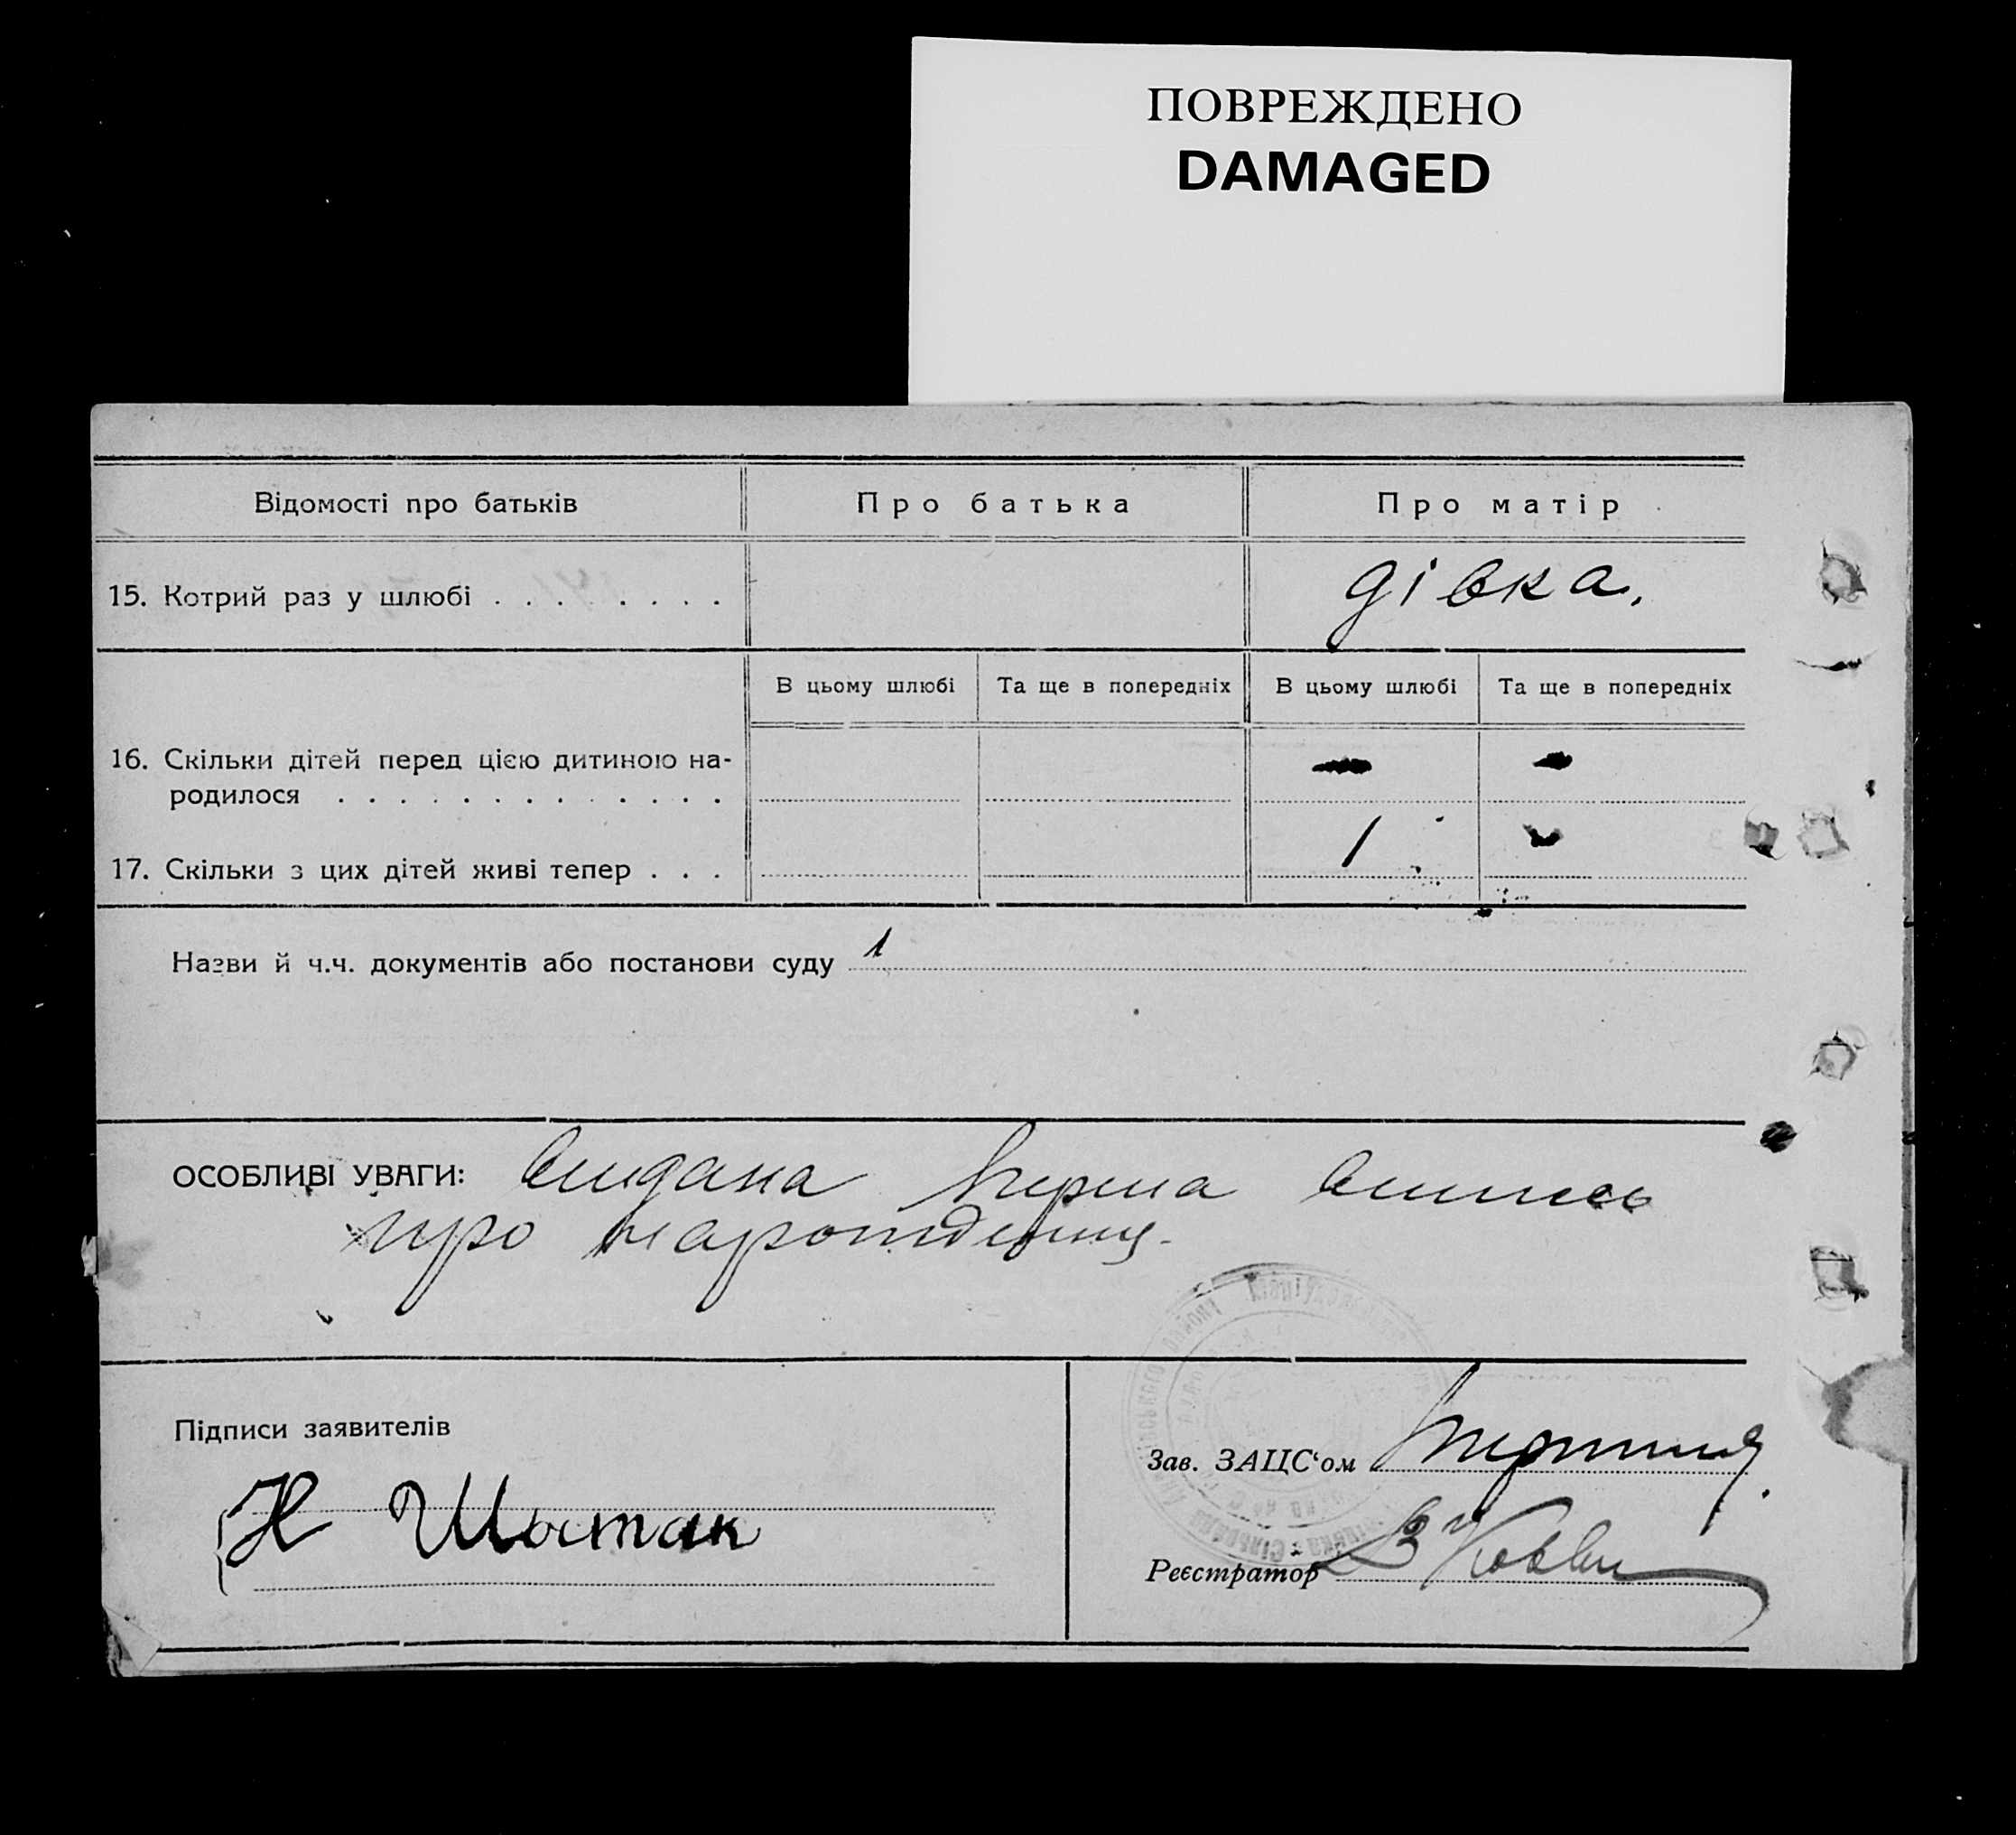 ПОВРЕЖДЕНО
DAMAGED
Відомості про батьків
Про батька
Про матір
15. Котрий раз у шлюбі . . . . . . . .
дівка.
В цьому шлюбі
Та ще в попередніх
В цьому шлюбі
Та ще в попередніх
16. Скільки дітей перед цією дитиною на-
родилося . . . . . . . . . . . . .
17. Скільки з цих дітей живі тепер . . .
1
Назви й ч.ч. документів або постанови суду 1
ОСОБЛИВІ УВАГИ: видана перша випись
про народження.
Підписи заявителів
Н Шостак
Зав. ЗАЦС‘ом
Реєстратор